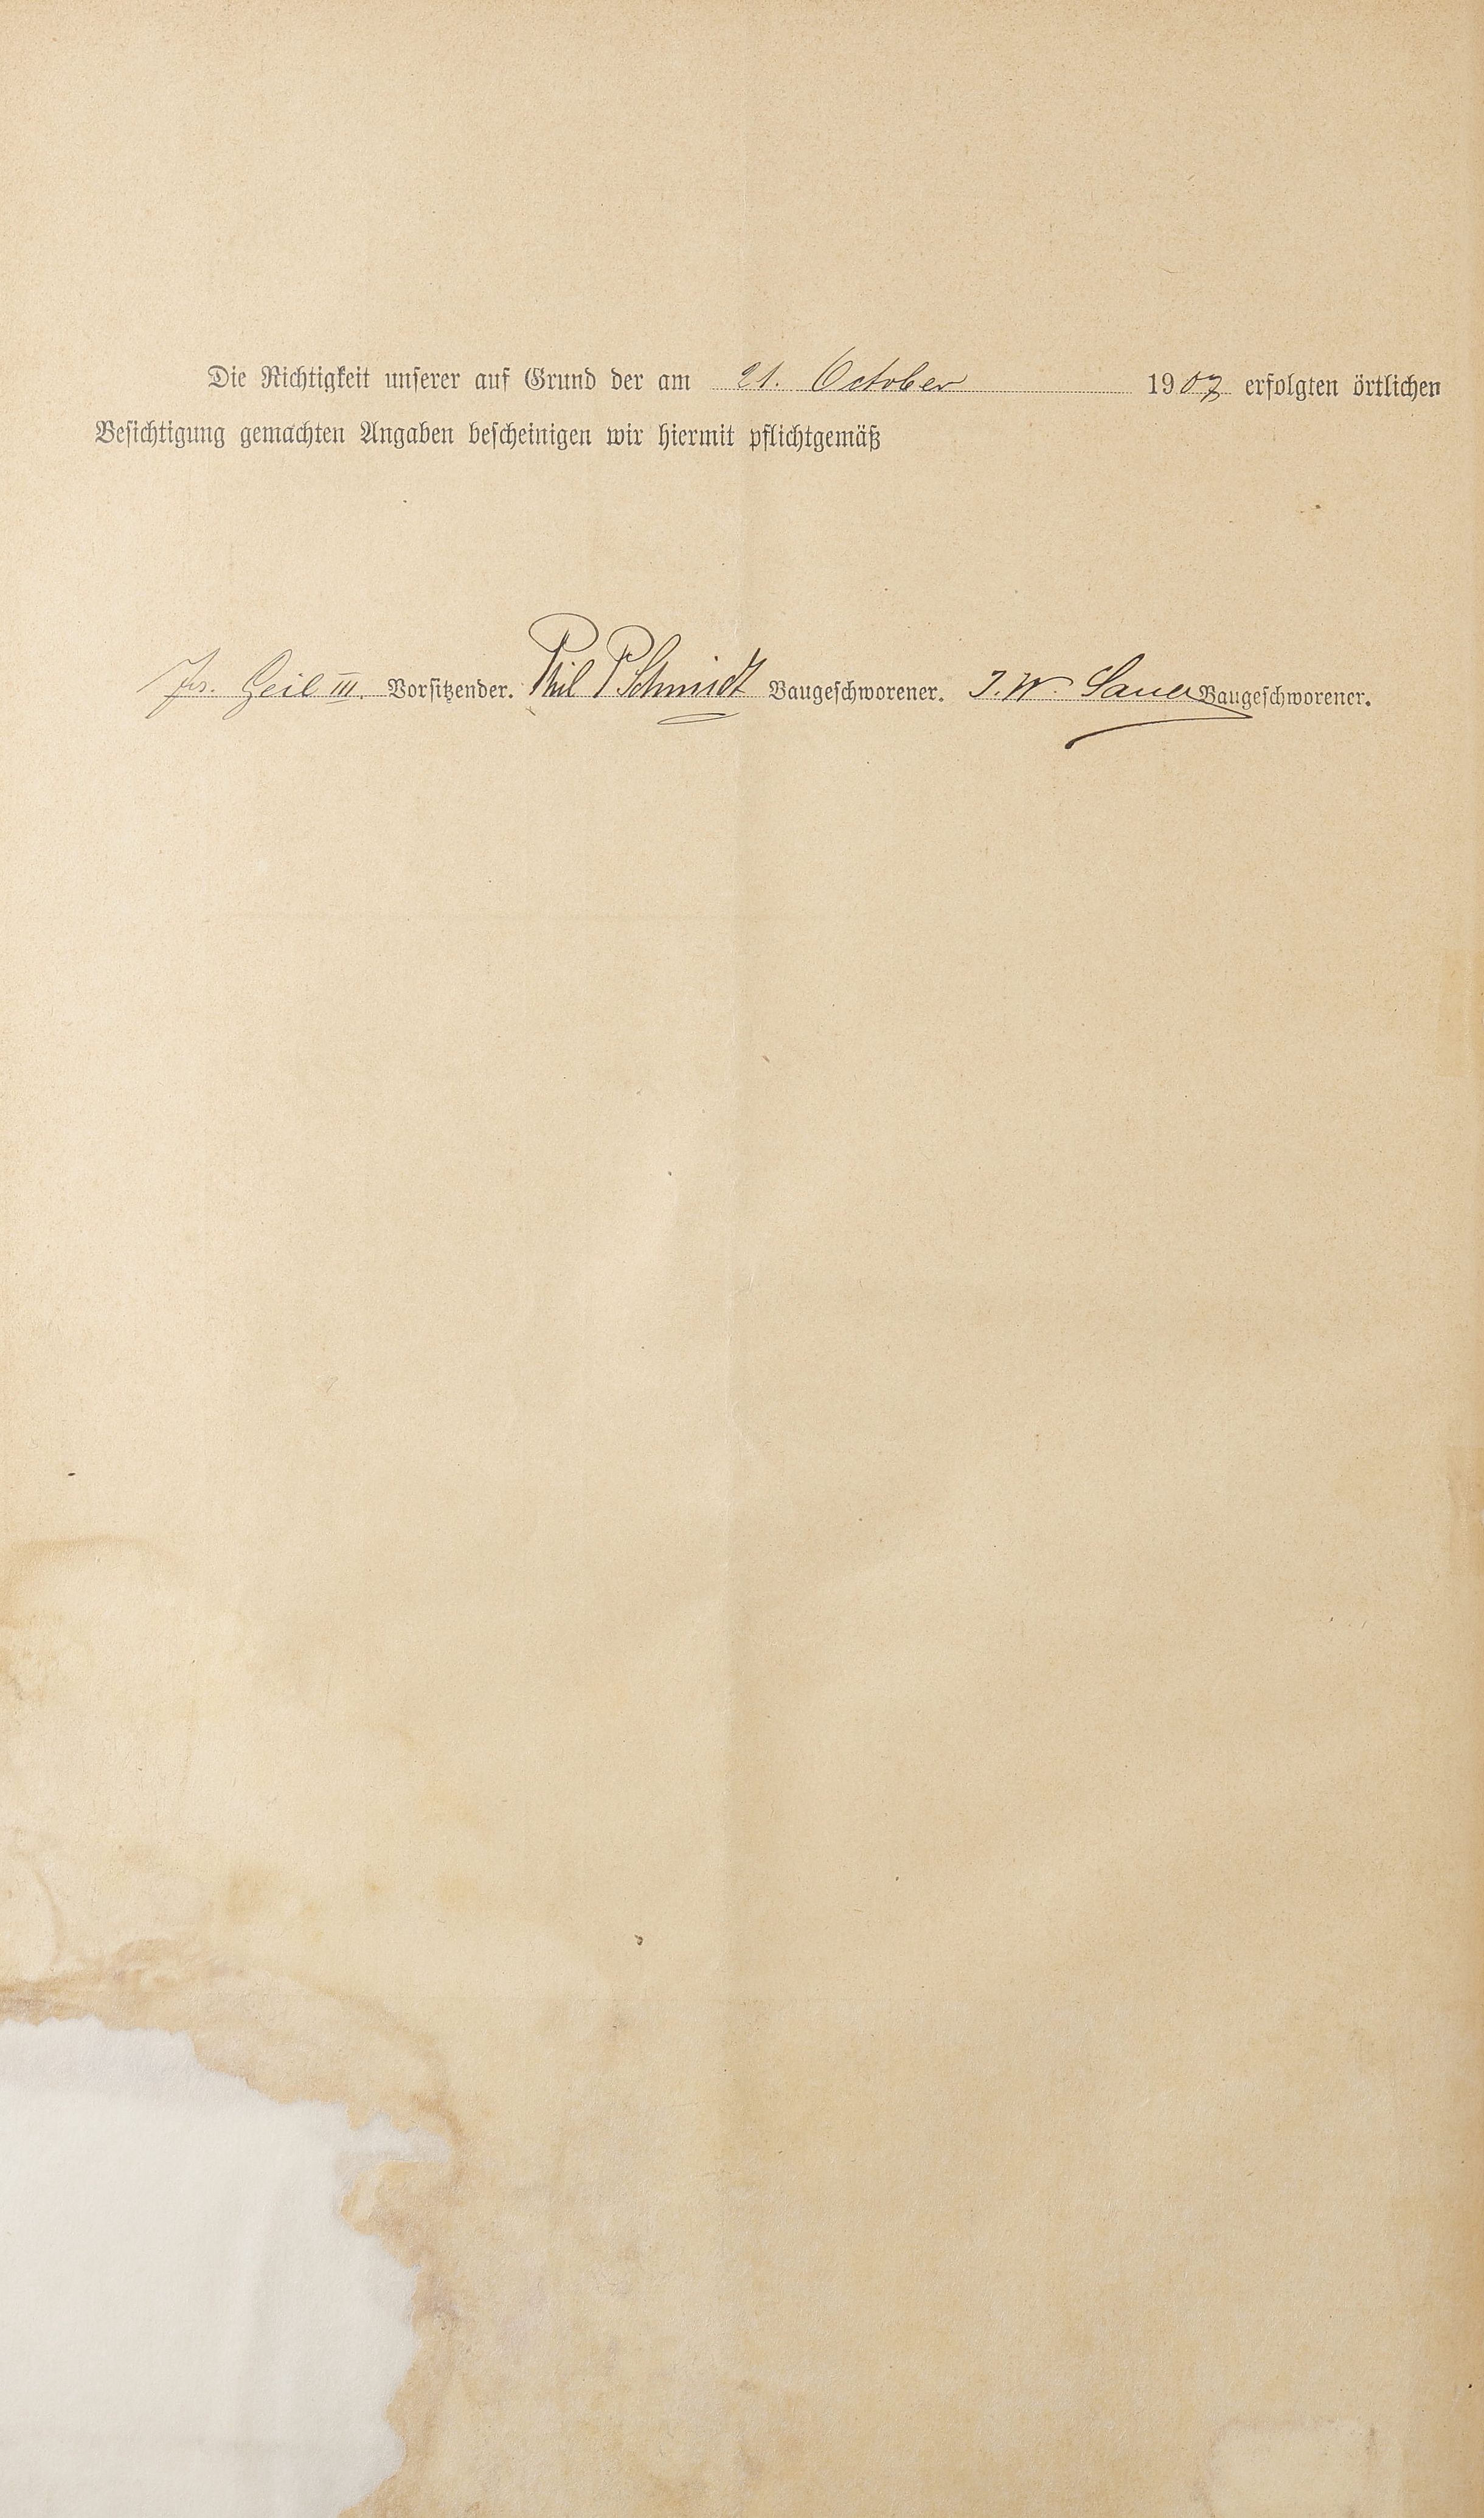 Die Richtigkeit unserer auf Grund der am 21. October 1907 erfolgten örtlichen
Besichtigung gemachten Angaben bescheinigen wir hiermit pflichtgemäß
Geil III. Vorsitzender. Phil P Schmidt Baugeschworener. J. W. Sauer Baugeschworener.